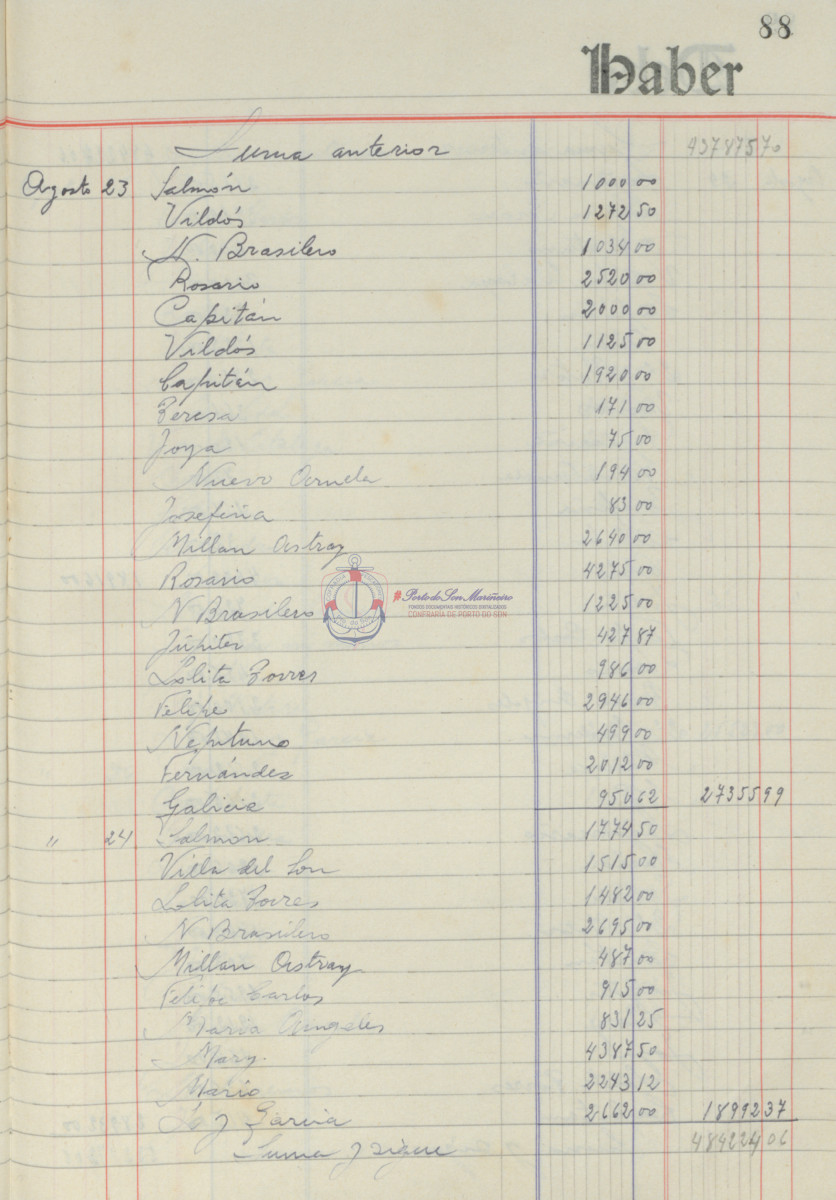 88
Haber
Suma anterior 437875 70
Agosto 23 Salmón 1000 00
Vildós 1272 50
N. Brasilero 1034 00
Rosario 2520 00
Capitán 2000 00
Vildós 1125 00
Capitán 1920 00
Teresa 171 00
Joya 75 00
Nuevo 194 00
Josefina 83 00
Millan Astray 2640 00
Rosario 4275 00
N Brasilero 1225 00
Júpiter 427 87
Lolita Torres 986 00
Felipe 2946 00
Neptuno 499 00
Fernández 2012 00
Galicia 950 62 27355 99
" 24 Salmon 1774 50
Villa del Son 1515 00
Lolita Torres 1482 00
N Brasilero 2695 00
Millan Astray 487 00
Felipe Carlos 915 00
Maria Angeles 831 25
Mary. 4387 50
Mario 2243 12
García 2662 00 18992 37
Suma y sigue 484224 06
#Porto do Son Mariñeiro
FONDOS DOCUMENTAIS HISTÓRICOS DIXITALIZADOS
CONFRARÍA DE PORTO DO SON